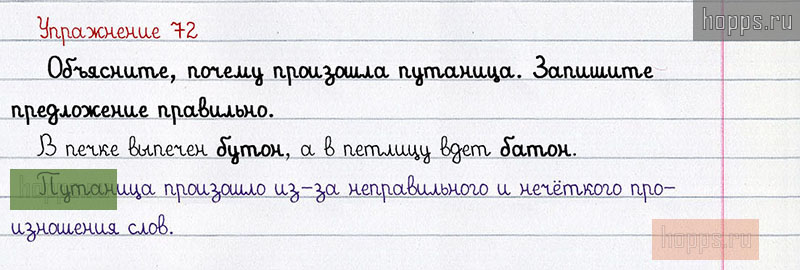 hopps.ru
Упражнение 72
Объясните, почему произошла путаница. Запишите
предложение правильно.
В печке выпечен бутон, а в петлицу вдет батон.
Путаница произошло из-за неправильного и нечёткого про-
изношения слов.
hopps.ru